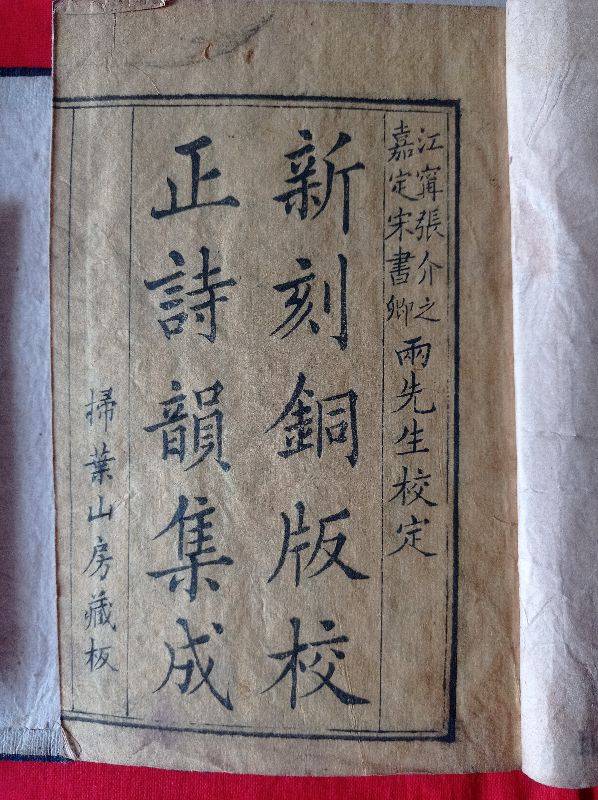 江甯張介之
嘉定宋書卿
兩先生校定
新刻銅版校
正詩韻集成
掃葉山房藏板